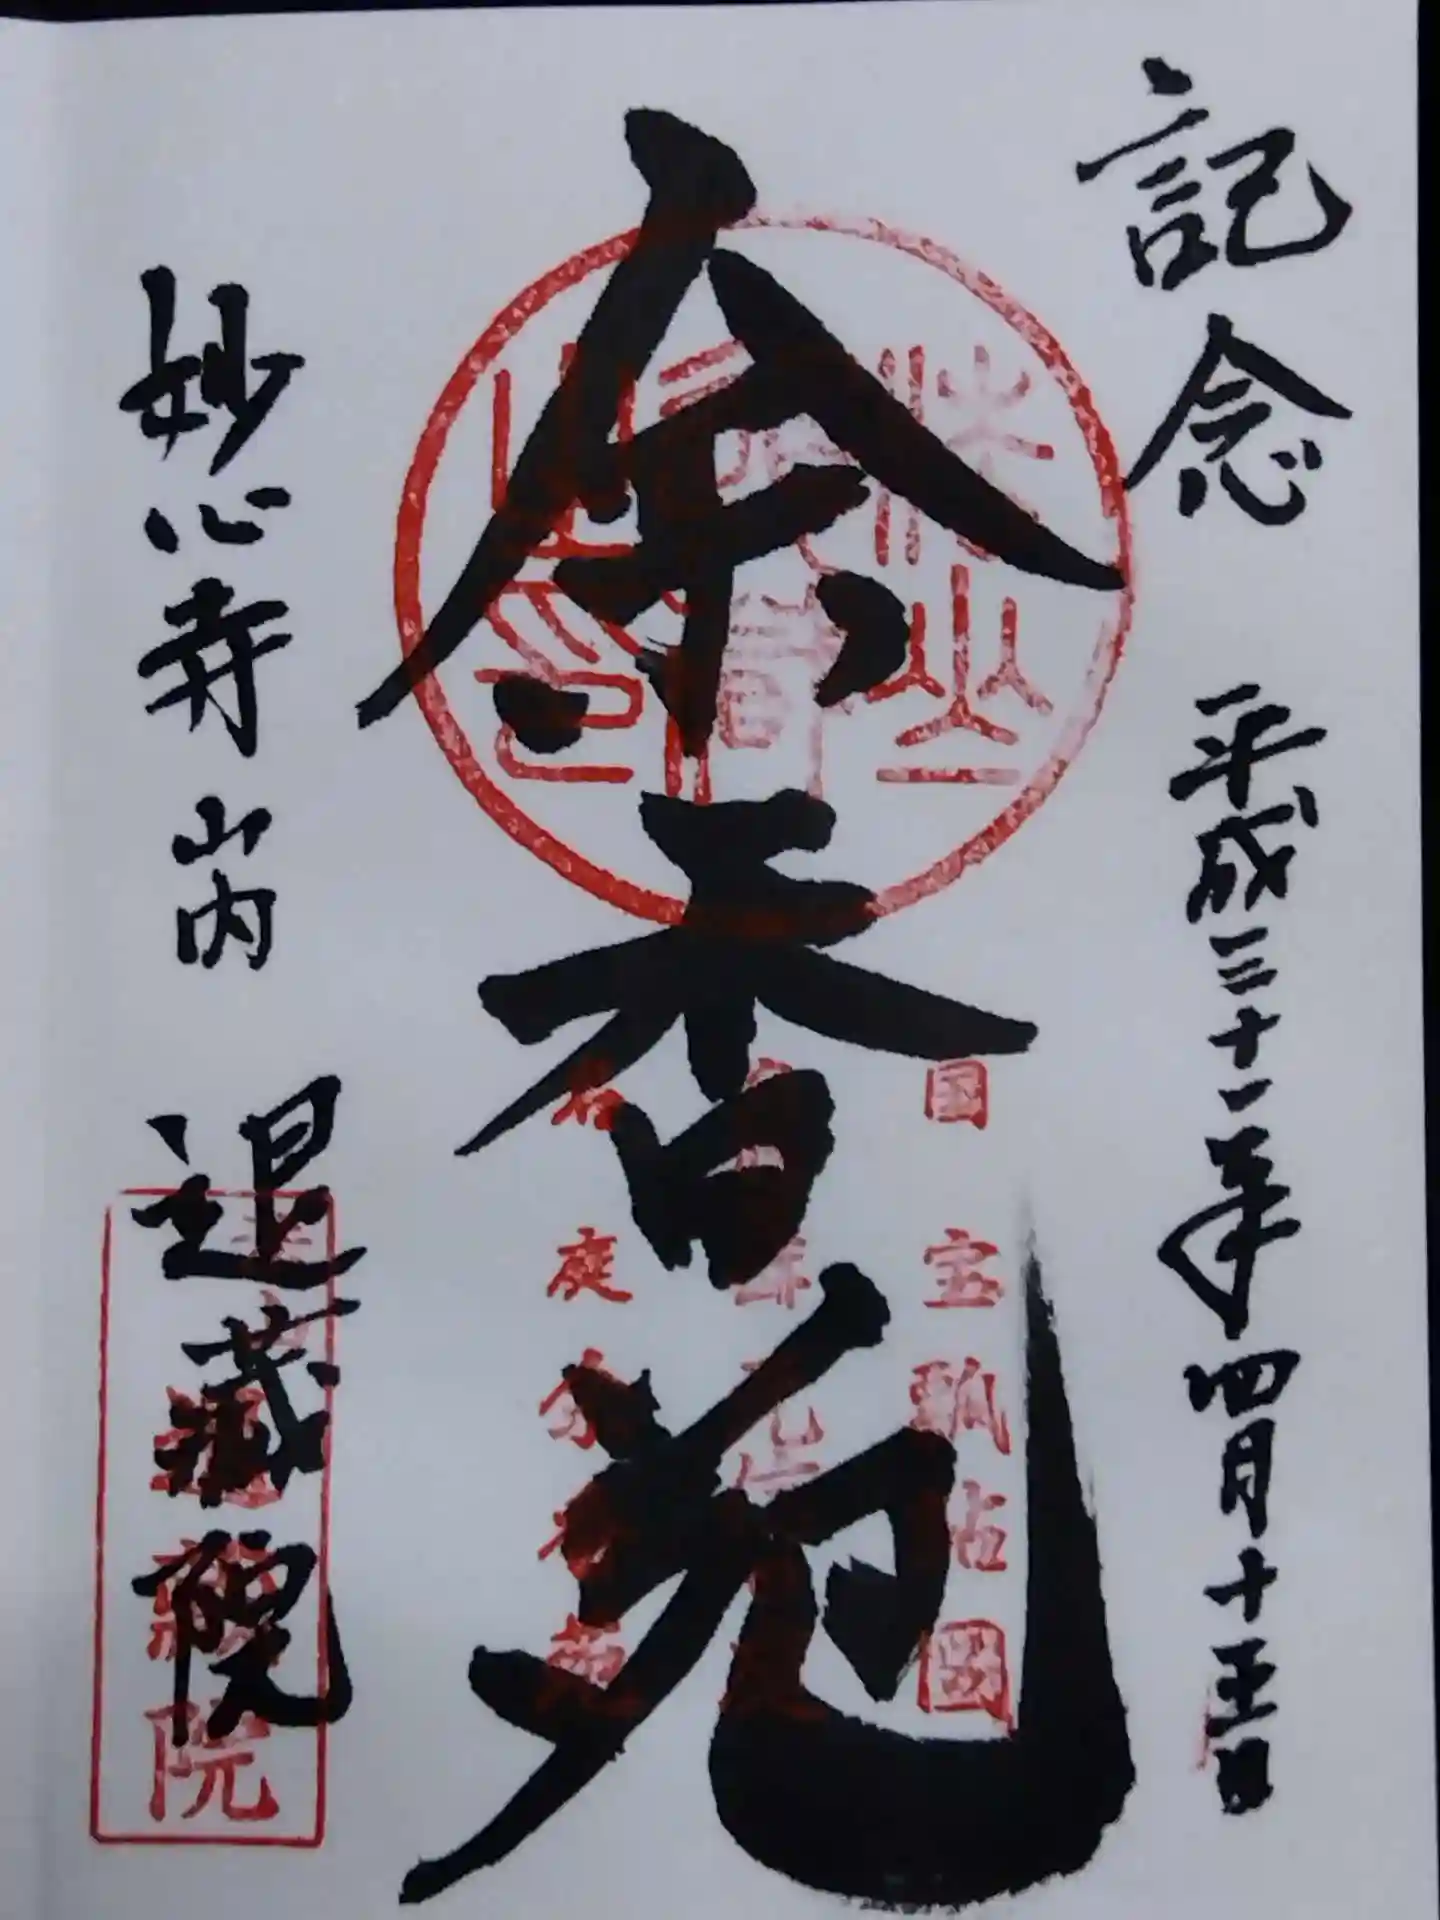 記念 平成三十一年四月十五日
余香苑
妙心寺山内 退蔵院
国宝瓢鮎図
名庭余香苑